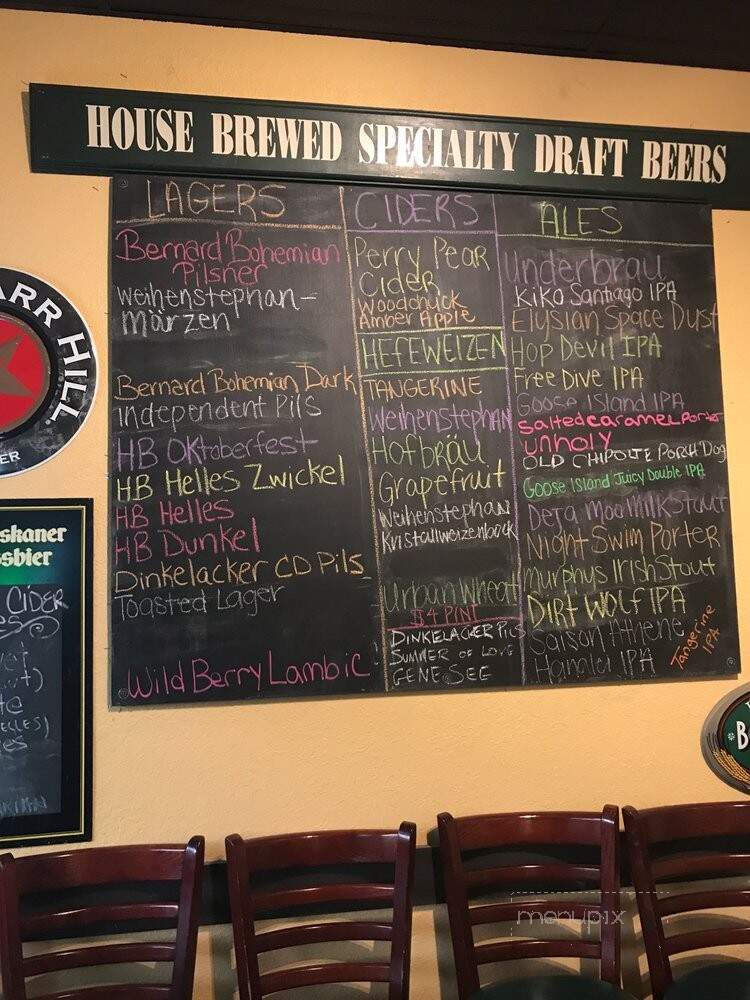 HOUSE BREWED SPECIALTY DRAFT BEERS
LAGERS
Bernard Bohemian
Pilsner
Weihenstephan-
märzen
Bernard Bohemian Dark
Independent Pils
HB Oktoberfest
HB Helles Zwickel
HB Helles
HB Dunkel
Dinkelacker CD Pils
Toasted Lager
Wild Berry Lambic
CIDERS
Perry Pear
Cider
Woodchuck
Amber Apple
HEFEWEIZEN
TANGERINE
Weihenstephan
Hofbräu
Grapefruit
Weihenstephan
Kristallweizenbock
Urban Wheat
$4 PINT
DINKELACKER PILS
SUMMER OF LOVE
GENESEE
ALES
Underbräu
Kiko Santiago IPA
Elysian Space Dust
Hop Devil IPA
Free Dive IPA
Goose Island IPA
Salted caramel Porter
unholy
OLD CHIPOLTE PORK Dog
Goose Island Juicy Double IPA
Deja Moo Milk Stout
Night Swim Porter
Murphys Irish Stout
DIRT WOLF IPA
Saison Athene
IPA
Tangerine
IPA
ARR HILL
ER
skaner
ssbier
CIDER
menupix